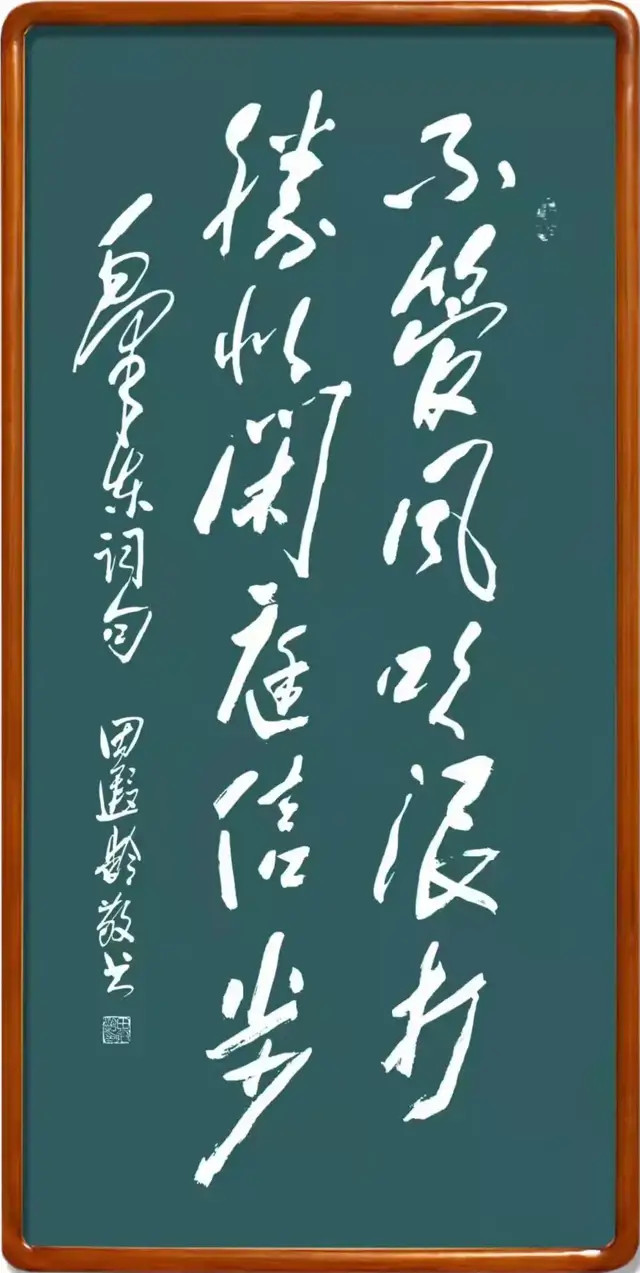 不管风吹浪打
胜似闲庭信步
毛泽东词句 田遐龄敬书